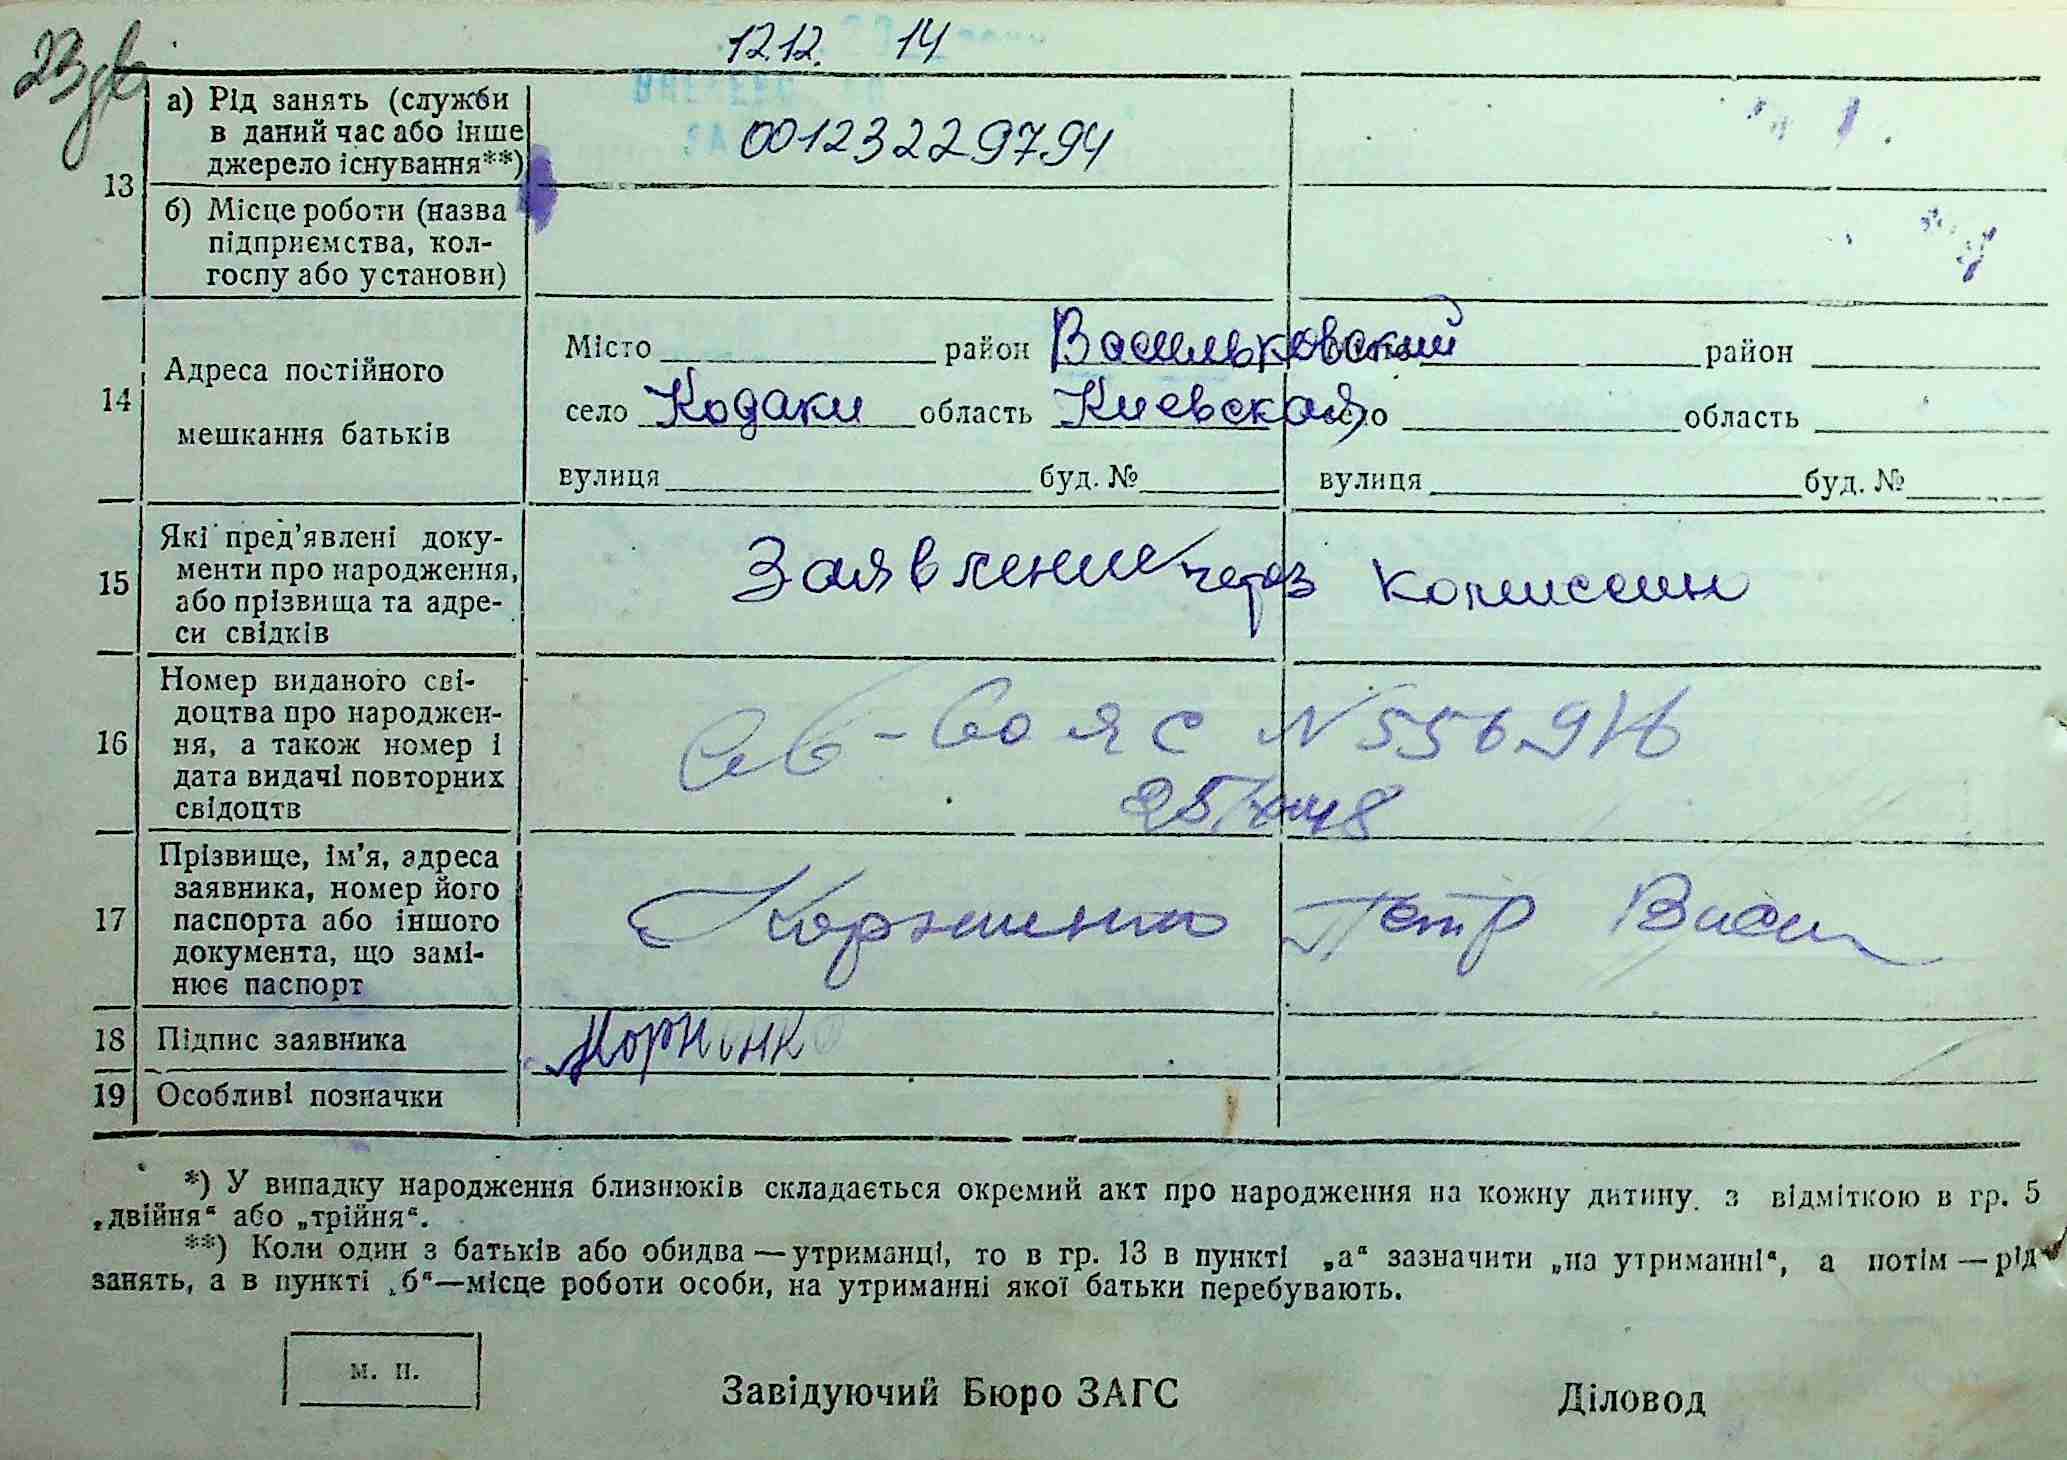 12.12. 14
а) Рід занять (служби
в даний час або інше
джерело існування**)
00123229794
13
б) Місце роботи (назва
підприємства, кол-
госпу або установи)
14
Адреса постійного
мешкання батьків
Місто район Васильковский район
село Кодаки область Киевская село область
вулиця буд. № вулиця буд. №
15
Які пред'явлені доку-
менти про народження,
або прізвища та адре-
си свідків
Заявление через комиссию
16
Номер виданого сві-
доцтва про народжен-
ня, а також номер і
дата видачі повторних
свідоцтв
17
Прізвище, ім'я, адреса
заявника, номер його
паспорта або іншого
документа, що замі-
нює паспорт
Петр Васил
18 Підпис заявника
19 Особливі позначки
*) У випадку народження близнюків складається окремий акт про народження на кожну дитину з відміткою в гр. 5
„двійня“ або „трійня“.
**) Коли один з батьків або обидва — утриманці, то в гр. 13 в пункті „а“ зазначити „на утриманні“, а потім — рід
занять, а в пункті „б“—місце роботи особи, на утриманні якої батьки перебувають.
м. п.
Завідуючий Бюро ЗАГС Діловод